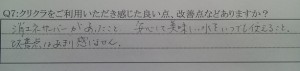 Q7:クリクラをご利用いただき感じた良い点、改善点などありますか?
省エネサーバーがあったこと 安心して美味しい水をいつでも使えること。
改善点はあまり感じません。